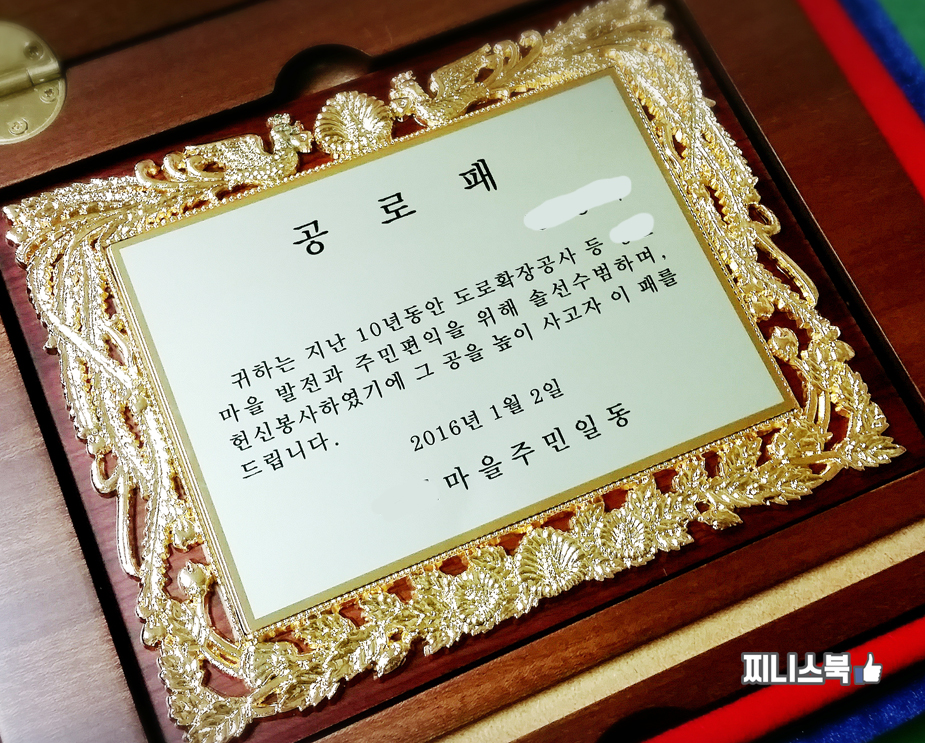 공로패
귀하는 지난 10년동안 도로확장공사 등
마을 발전과 주민편익을 위해 솔선수범하며,
헌신봉사하였기에 그 공을 높이 사고자 이 패를
드립니다.
2016년 1월 2일
마을주민일동
찌니스북